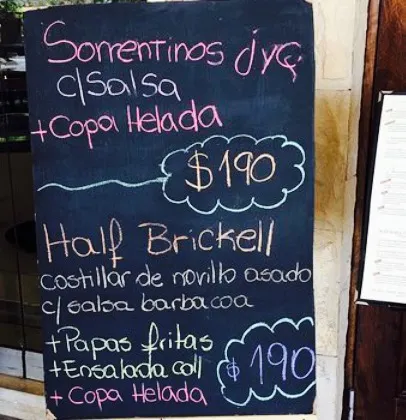 Sorrentinos jyq
c/Salsa
+Copa Helada
$190
Half Brickell
costillar de novillo asado
c/salsa barbacoa
+Papas fritas
+Ensalada coll
$190
+ Copa Helada